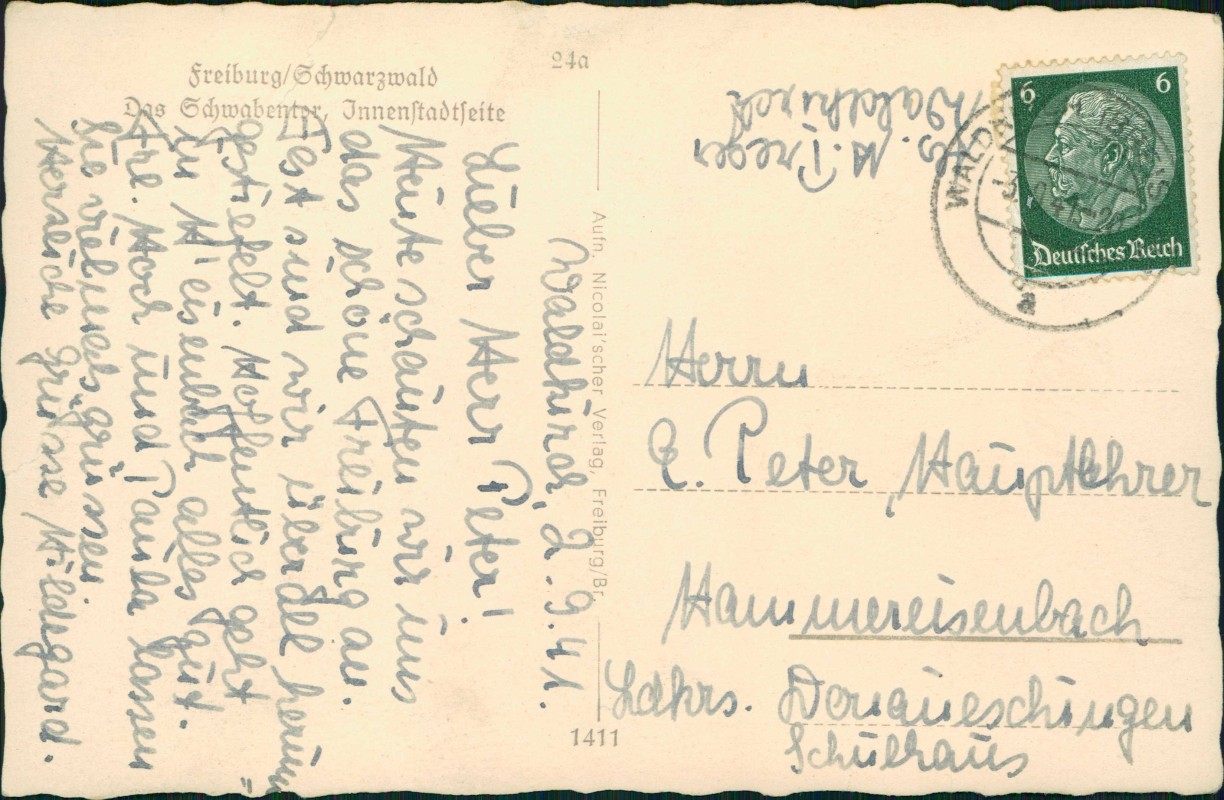 Freiburg/Schwarzwald
Das Schwabentor, Innenstadtseite
24a
Waldkirch, 2.9.41.
Lieber Herr Peter!
Heute schauten wir uns
das schöne Freiburg an.
Fest sind wir überall herum=
gestiefelt. Hoffentlich geht
in H'eisenbach alles gut.
Frl. Hoch und Paula lassen
Sie vielmals grüssen
Herzliche Grüsse Hildegard.
Aufn. Nicolai'scher Verlag, Freiburg/Br.
1411
H. Preger
Waldkirch
6 6
Deutsches Reich
WALDK
a
Herrn
E. Peter, Hauptlehrer
Hammereisenbach
Ldkrs. Donaueschingen
Schulhaus